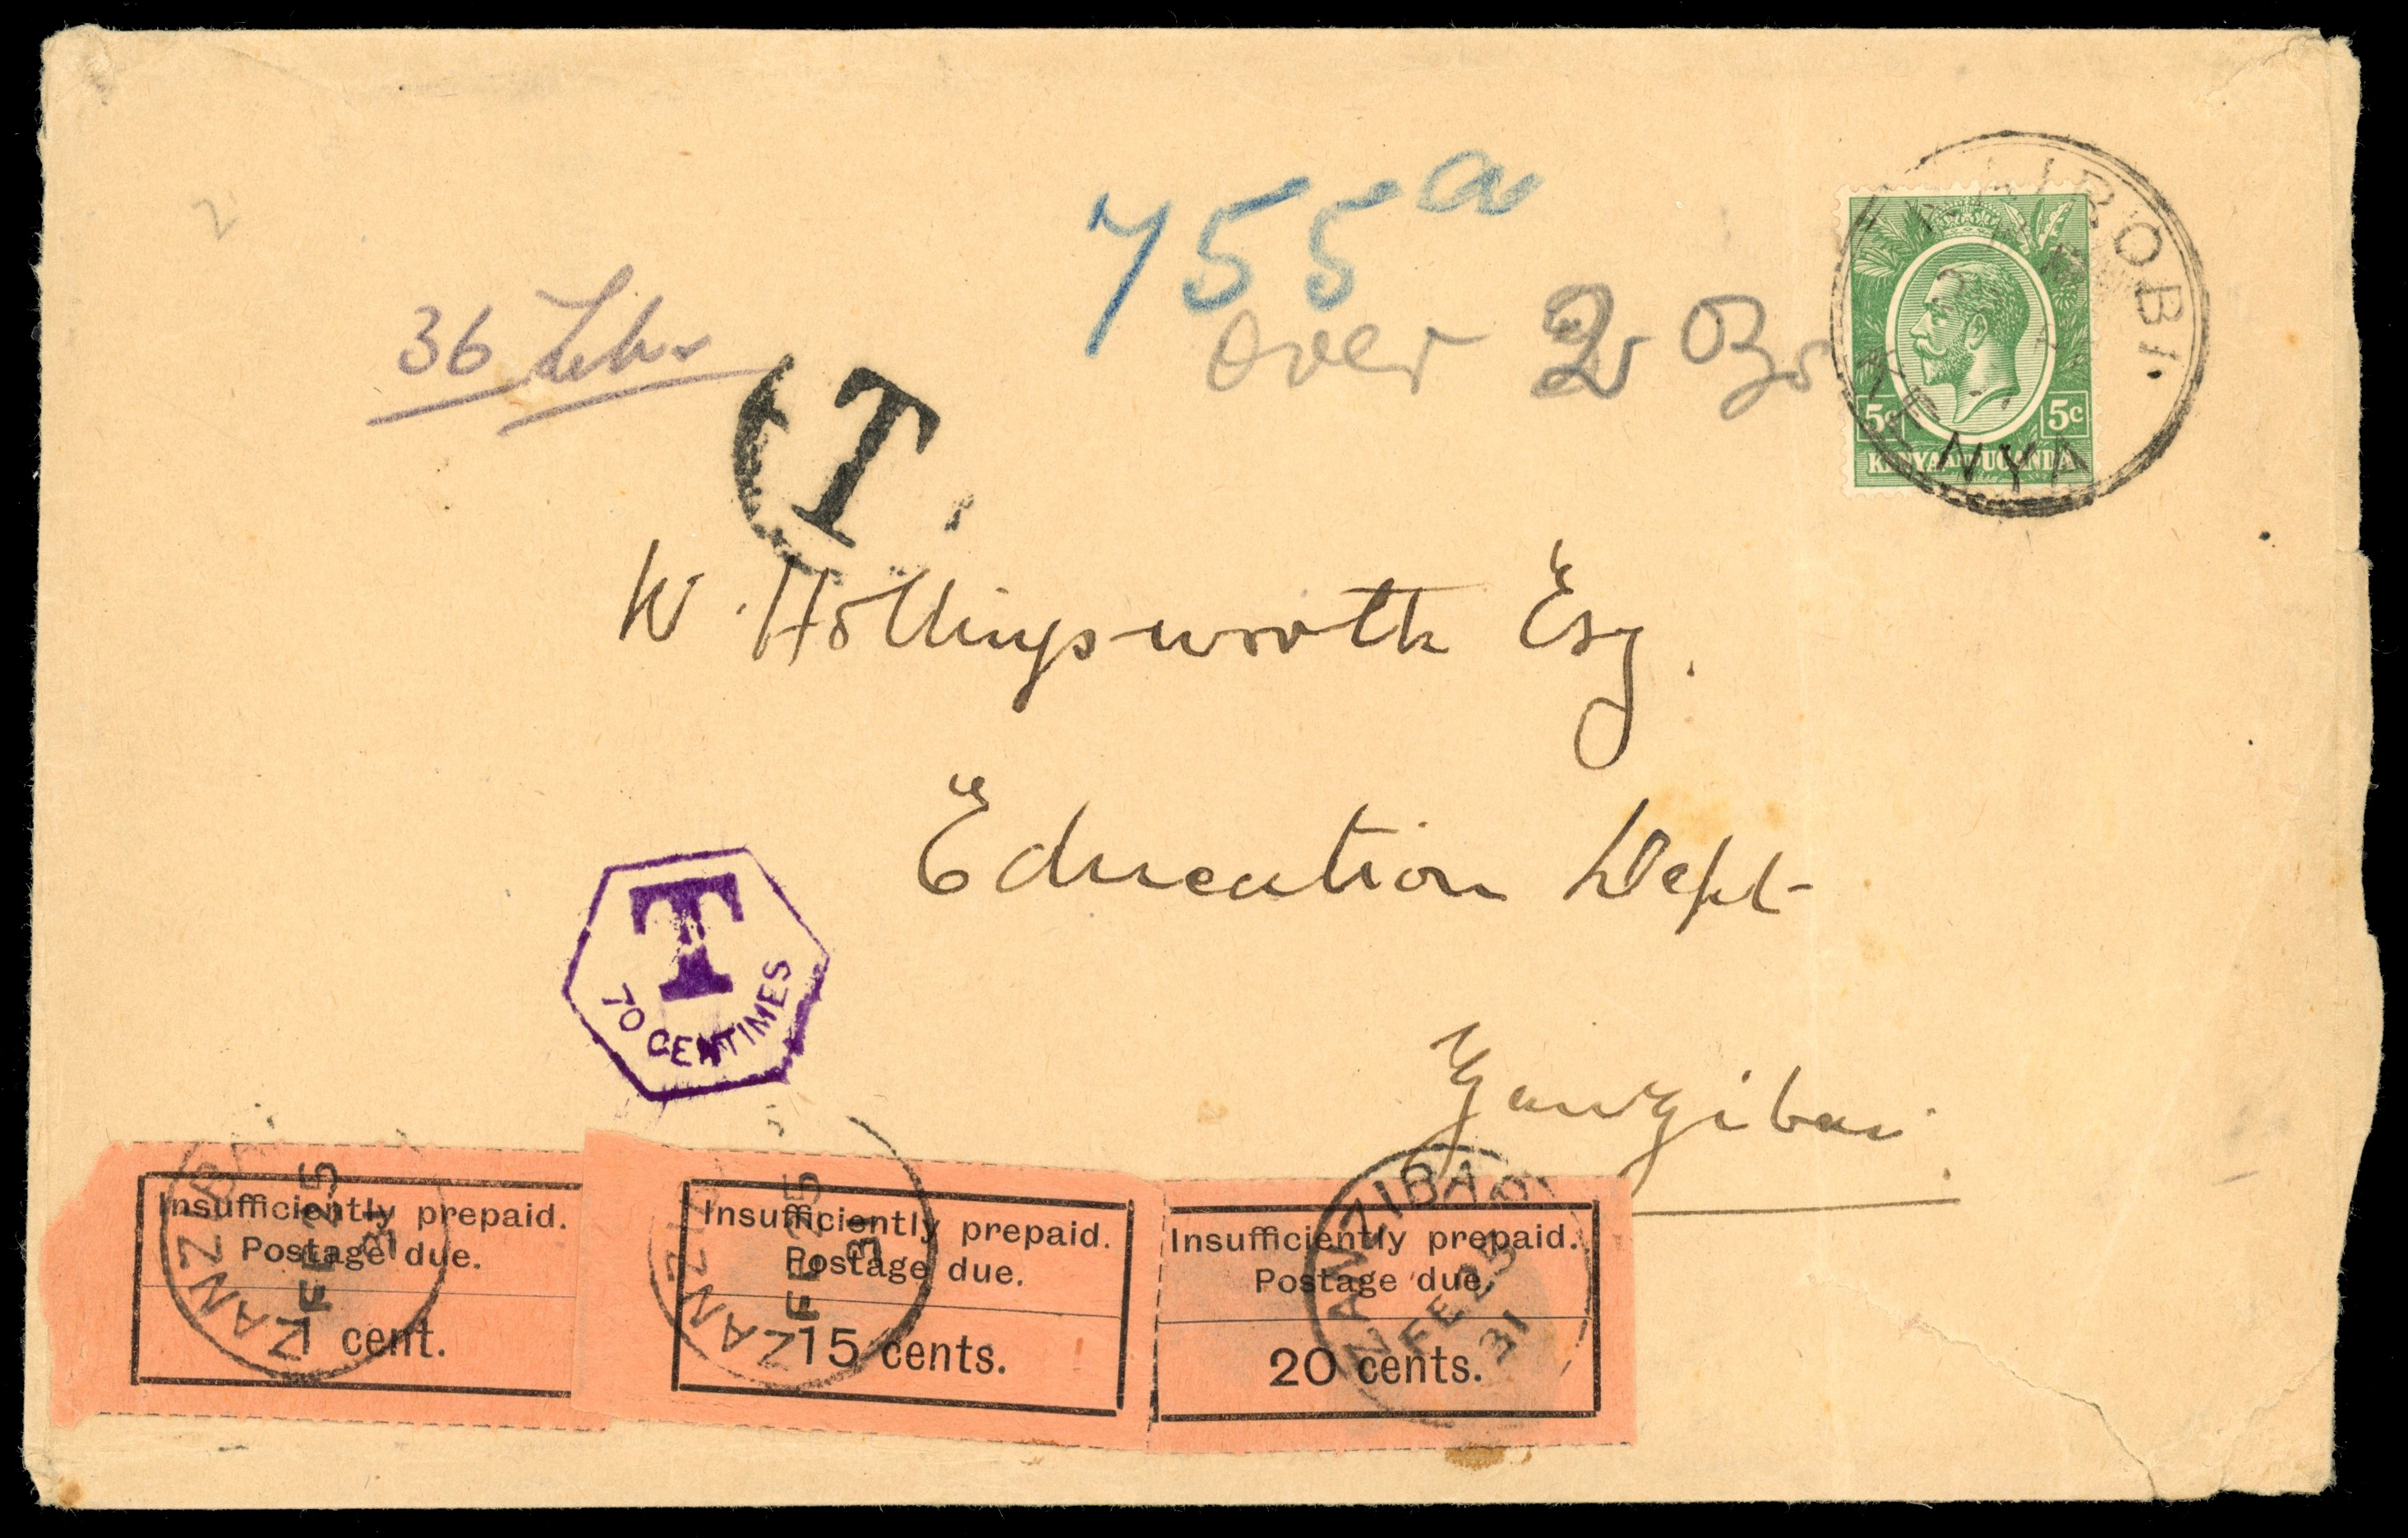 2
755a
36
over 2 Ozs
NAIROBI.
KENYA
5c 5c
KENYA AND UGANDA
T
W. Hollingsworth Esq.
Education Dept
Zanzibar.
T
70 CENTIMES
ZANZIBAR
FE 25
31
Insufficiently prepaid.
Postage due.
1 cent.
ZANZIBAR
FE 25
31
Insufficiently prepaid.
Postage due.
15 cents.
ZANZIBAR
FE 25
31
Insufficiently prepaid.
Postage due.
20 cents.